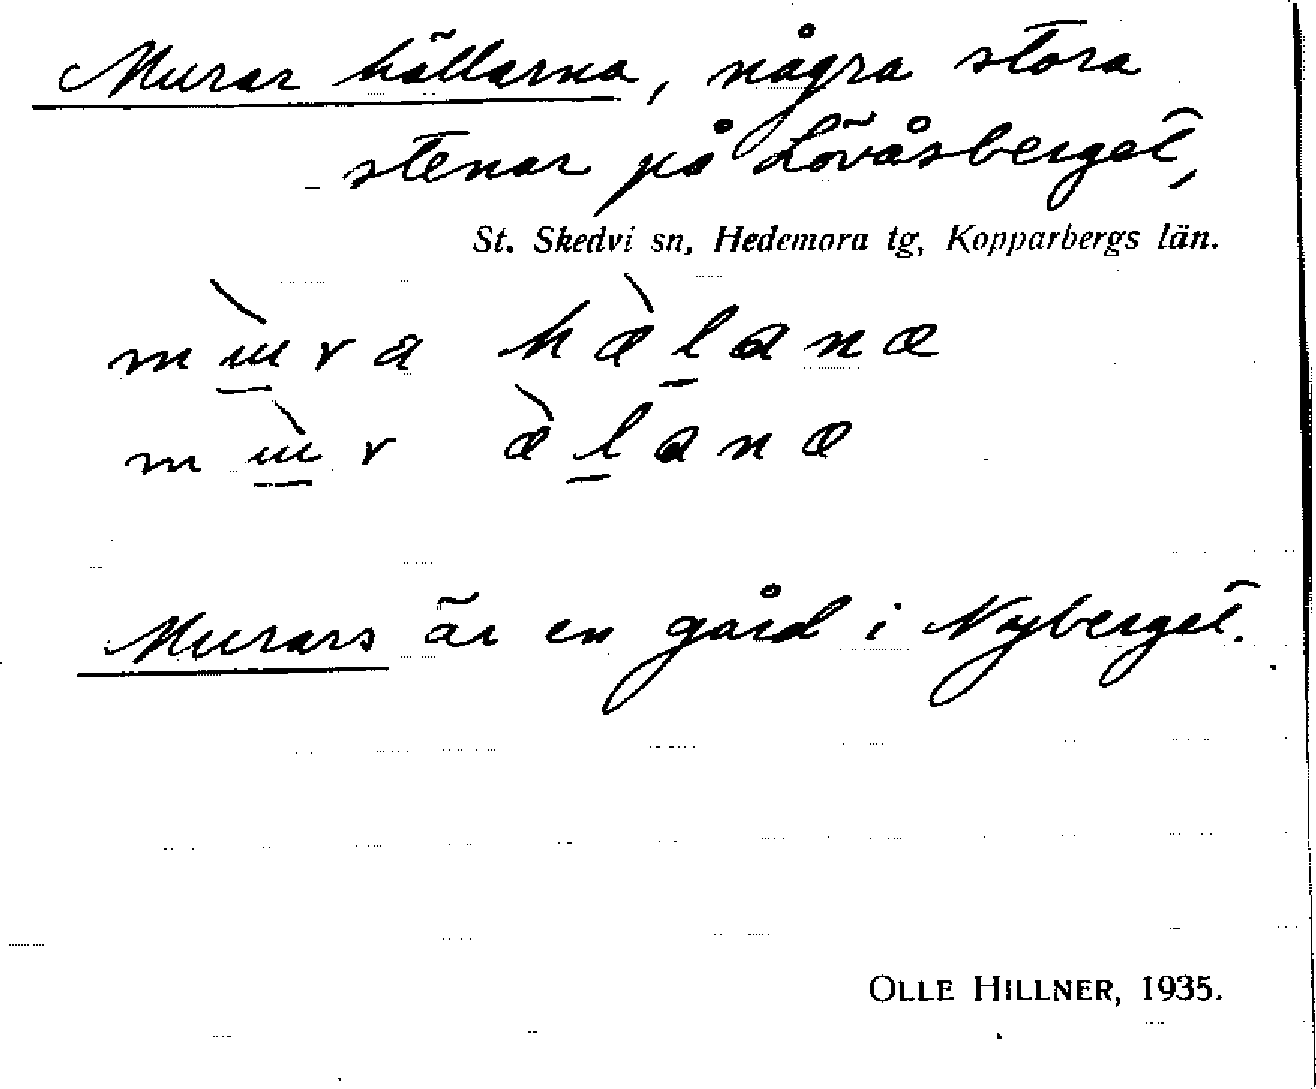 Murar hällarna, några stora
stenar på Lövåsberget,
St. Skedvi sn, Hedemora tg, Kopparbergs län.
mùra hæ̀lanæ
mùr æ̀lanæ
Murars är en gård i Nyberget.
OLLE HILLNER, 1935.